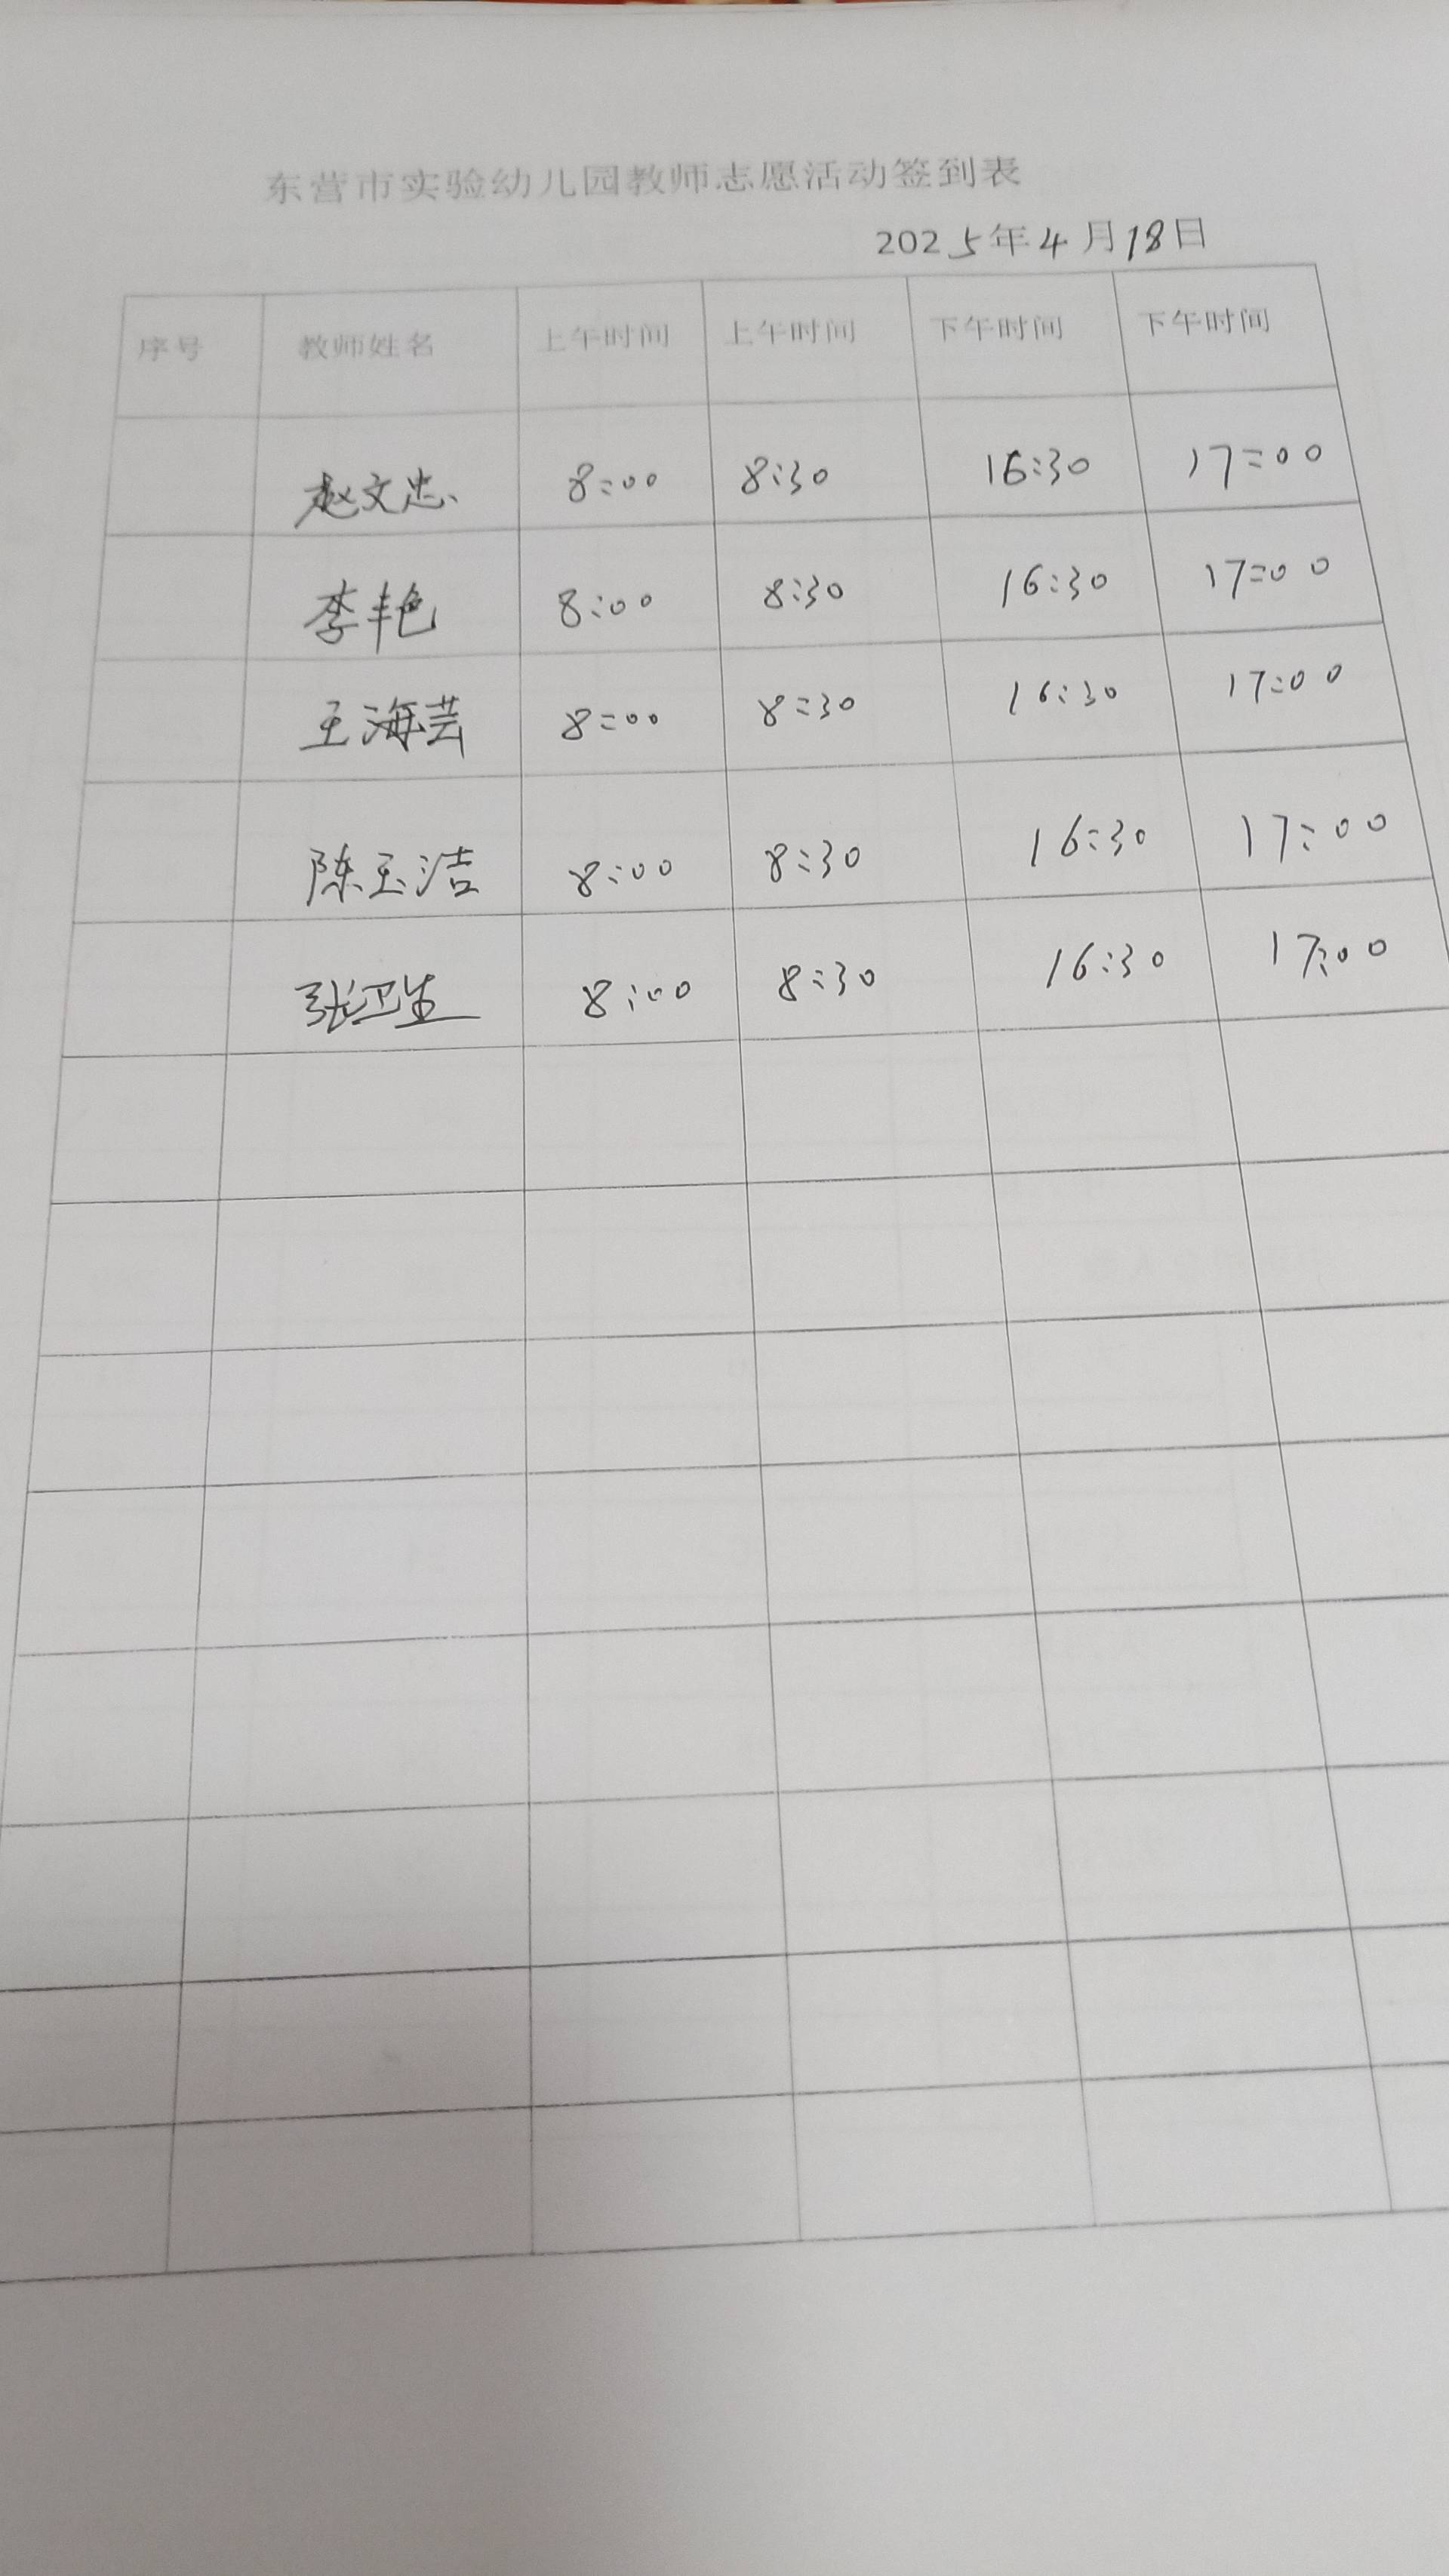 东营市实验幼儿园教师志愿活动签到表
2025年4月18日
序号 教师姓名 上午时间 上午时间 下午时间 下午时间
赵文忠 8:00 8:30 16:30 17:00
李艳 8:00 8:30 16:30 17:00
王海芸 8:00 8:30 16:30 17:00
陈玉洁 8:00 8:30 16:30 17:00
张卫生 8:00 8:30 16:30 17:00